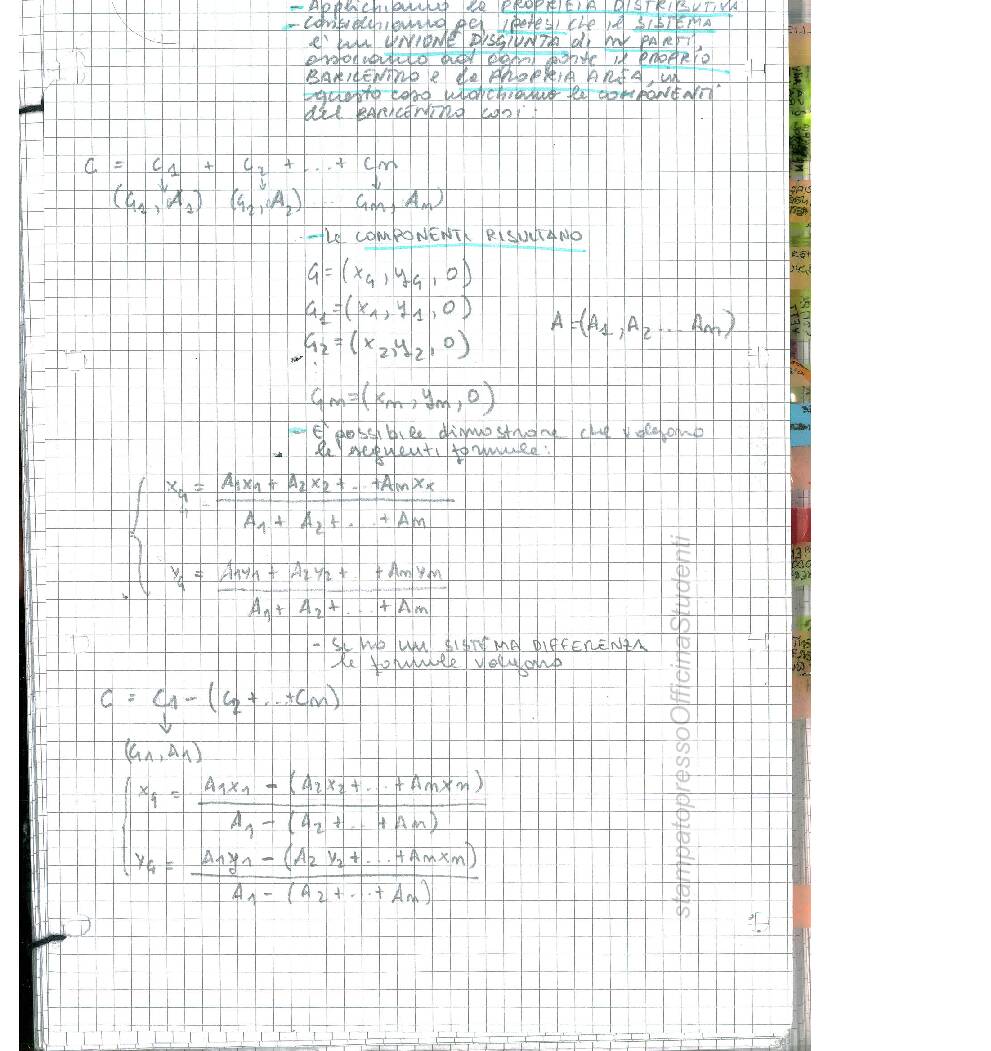 - Applichiamo la PROPRIETÀ DISTRIBUTIVA
- Consideriamo per ipotesi che il SISTEMA
è un UNIONE DISGIUNTA di m PARTI,
associamo ad ogni parte il PROPRIO
BARICENTRO e la PROPRIA AREA, in
questo caso indichiamo le COMPONENTI
del BARICENTRO così:
C = C1 + C2 + ... + Cm
(G1, A1) (G2, A2) ... Gm, Am)
- Le COMPONENTI RISULTANO
G = (xG, yG, 0)
G1 = (x1, y1, 0)
A = (A1, A2 ... Am)
G2 = (x2, y2, 0)
Gm = (xm, ym, 0)
- È possibile dimostrare che valgono
le seguenti formule:
xG = A1x1 + A2x2 + ... + Amxx
A1 + A2 + ... + Am
yG = A1y1 + A2y2 + ... + Amym
A1 + A2 + ... + Am
- Se ho un SISTEMA DIFFERENZA
le formule valgono
C = C1 - (C2 + ... + Cm)
(G1, A1)
xG = A1x1 - (A2x2 + ... + Amxm)
A1 - (A2 + ... + Am)
yG = A1y1 - (A2y2 + ... + Amxm)
A1 - (A2 + ... + Am)
stampatopressoOfficinaStudenti